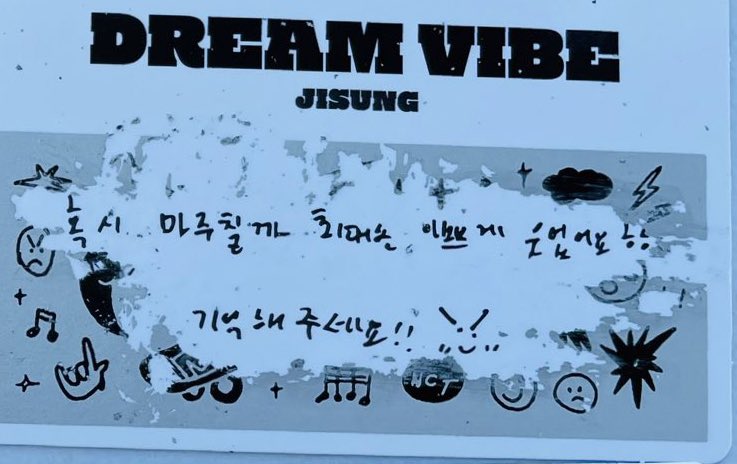 DREAM VIBE
JISUNG
혹시 마주칠까 최대한 이쁘게 웃었어요 ㅎㅎ
기억해 주세요!!
NCT